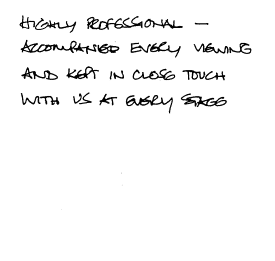 HIGHLY PROFESSIONAL —
ACCOMPANIED EVERY VIEWING
AND KEPT IN CLOSE TOUCH
WITH US AT EVERY STAGE